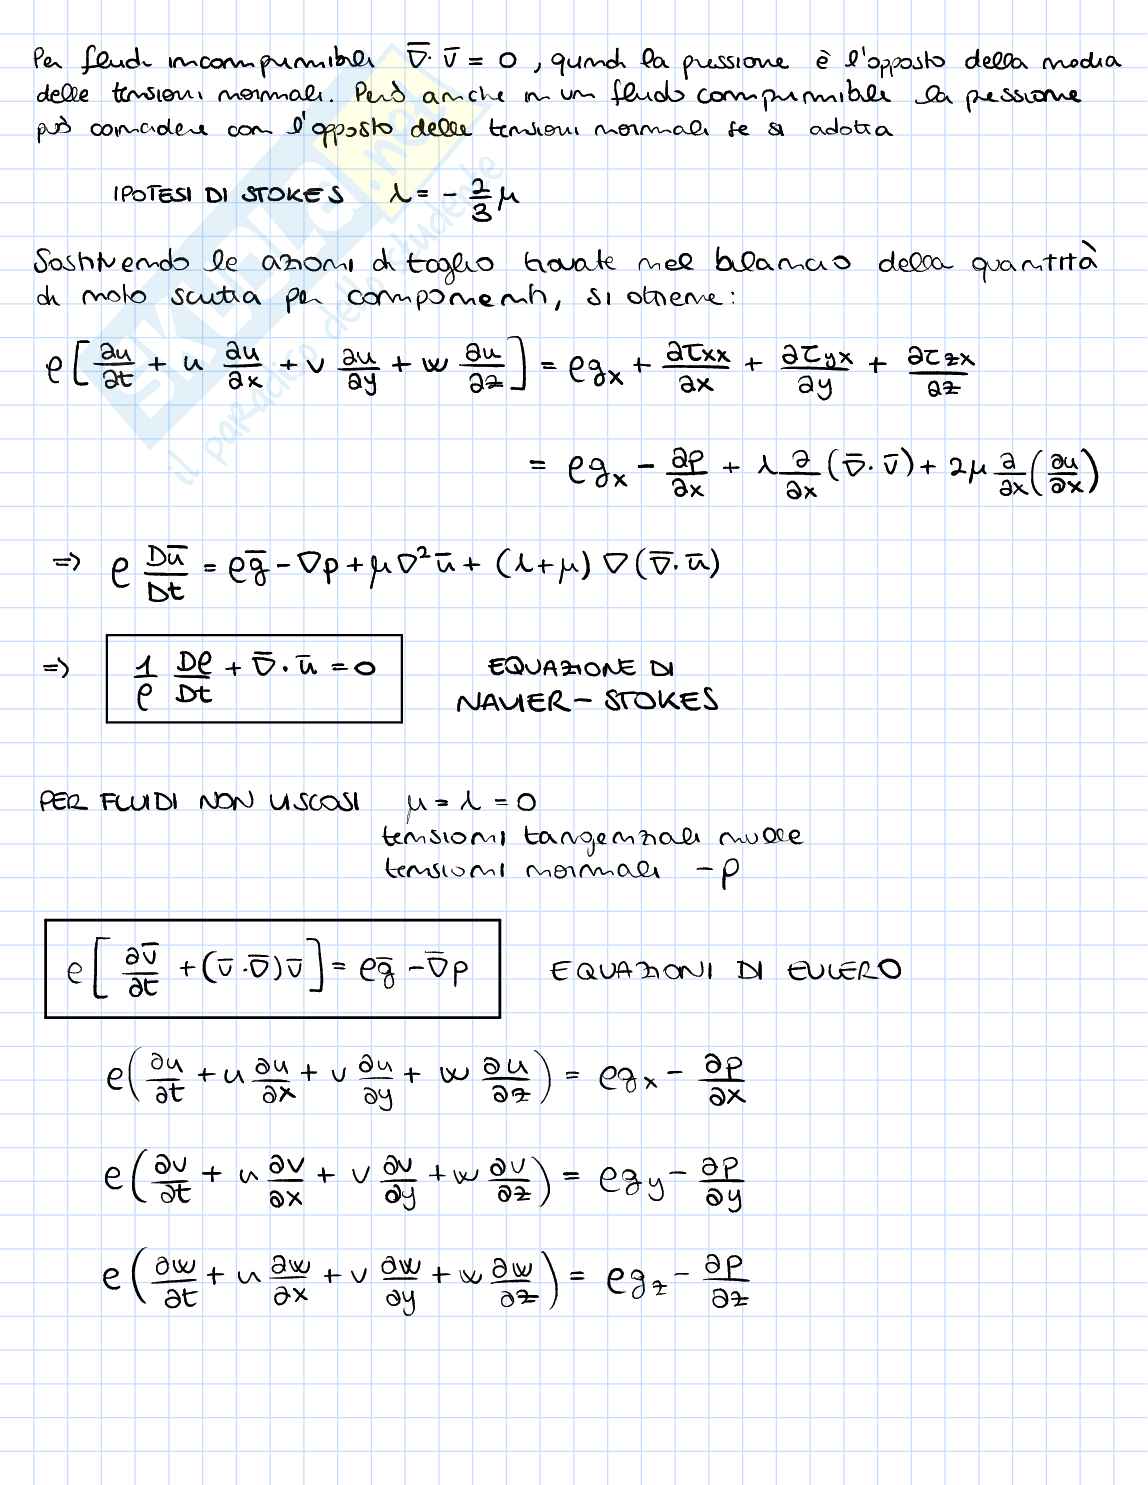 Per fluidi incomprimibili ∇̅·v̅ = 0, quindi la pressione è l'opposto della media
delle tensioni normali. Però anche in un fluido comprimibile la pressione
può coincidere con l'opposto delle tensioni normali se si adotta
IPOTESI DI STOKES λ = - 2/3 μ
Sostituendo le azioni di taglio trovate nel bilancio della quantità
di moto scritta per componenti, si ottiene:
ρ[∂u/∂t + u ∂u/∂x + v ∂u/∂y + w ∂u/∂z] = ρgx + ∂τxx/∂x + ∂τyx/∂y + ∂τzx/∂z
= ρgx - ∂p/∂x + λ ∂/∂x (∇̅·v̅) + 2μ ∂/∂x (∂u/∂x)
=> ρ Du̅/Dt = ρg̅ - ∇p + μ∇²u̅ + (λ+μ) ∇(∇̅·u̅)
=> 1/ρ Dρ/Dt + ∇̅·u̅ = 0 EQUAZIONE DI
NAVIER - STOKES
PER FLUIDI NON VISCOSI μ = λ = 0
tensioni tangenziali nulle
tensioni normali -p
ρ[∂v̅/∂t + (v̅·∇̅)v̅] = ρg̅ - ∇̅p EQUAZIONI DI EULERO
ρ(∂u/∂t + u ∂u/∂x + v ∂u/∂y + w ∂u/∂z) = ρgx - ∂p/∂x
ρ(∂v/∂t + u ∂v/∂x + v ∂v/∂y + w ∂v/∂z) = ρgy - ∂p/∂y
ρ(∂w/∂t + u ∂w/∂x + v ∂w/∂y + w ∂w/∂z) = ρgz - ∂p/∂z
SKUOLA.net
il paradiso dello studente